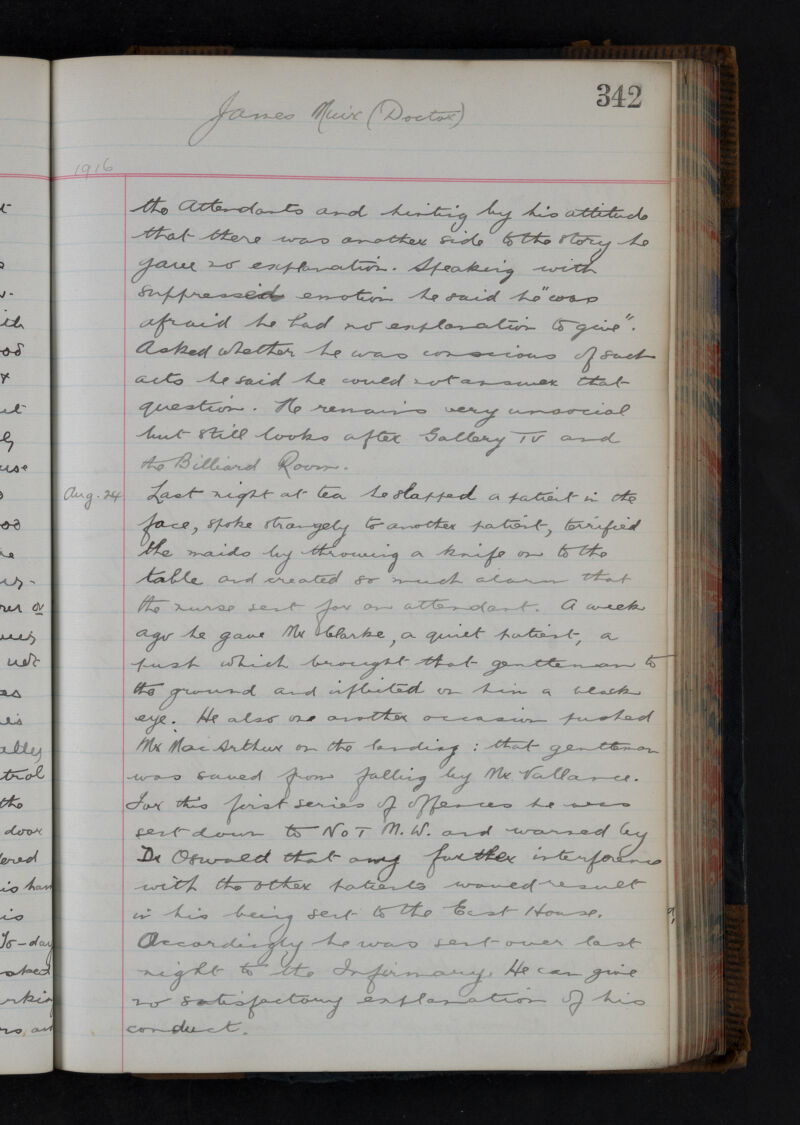 342
James Muir (Doctor)
1916
the Attendants and hinting by his attitude
that there was another side to the story he
gave no explanation. Speaking with
suppressed emotion he said he "was
afraid he had no explanation to give".
Asked whether he was conscious of such
acts he said he could not answer that
question. He remains very unsocial
but still looks after Gallery IV and
the Billiard Room.
Aug. 24 Last night at tea he slapped a patient in the
face, spoke strangely to another patient, terrified
the maids by throwing a knife on to the
table and created so much alarm that
the nurse sent for an attendant. A week
ago he gave Mr Clarke, a quiet patient, a
push which brought that gentleman to
the ground and inflicted on him a black
eye. He also one another occasion pushed
Mr MacArthur on the landing: that gentleman
was saved from falling by Mr Vallance.
For this first series of offences he was
sent down to No I M.W. and warned by
Dr Oswald that any further interference
with the other patients would result
in his being sent to the East House.
Accordingly he was sent over last
night to the Infirmary. He can give
no satisfactory explanation of his
conduct.